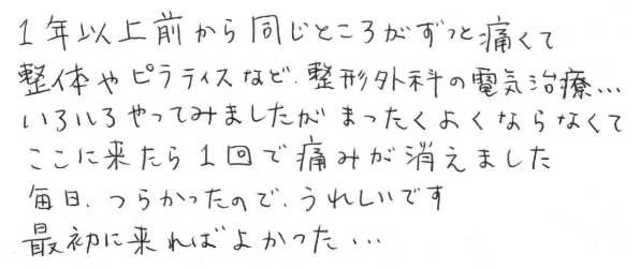 1年以上前から同じところがずっと痛くて
整体やピラティスなど、整形外科の電気治療…
いろいろやってみましたがまったくよくならなくて
ここに来たら1回で痛みが消えました
毎日、つらかったので、うれしいです
最初に来ればよかった…